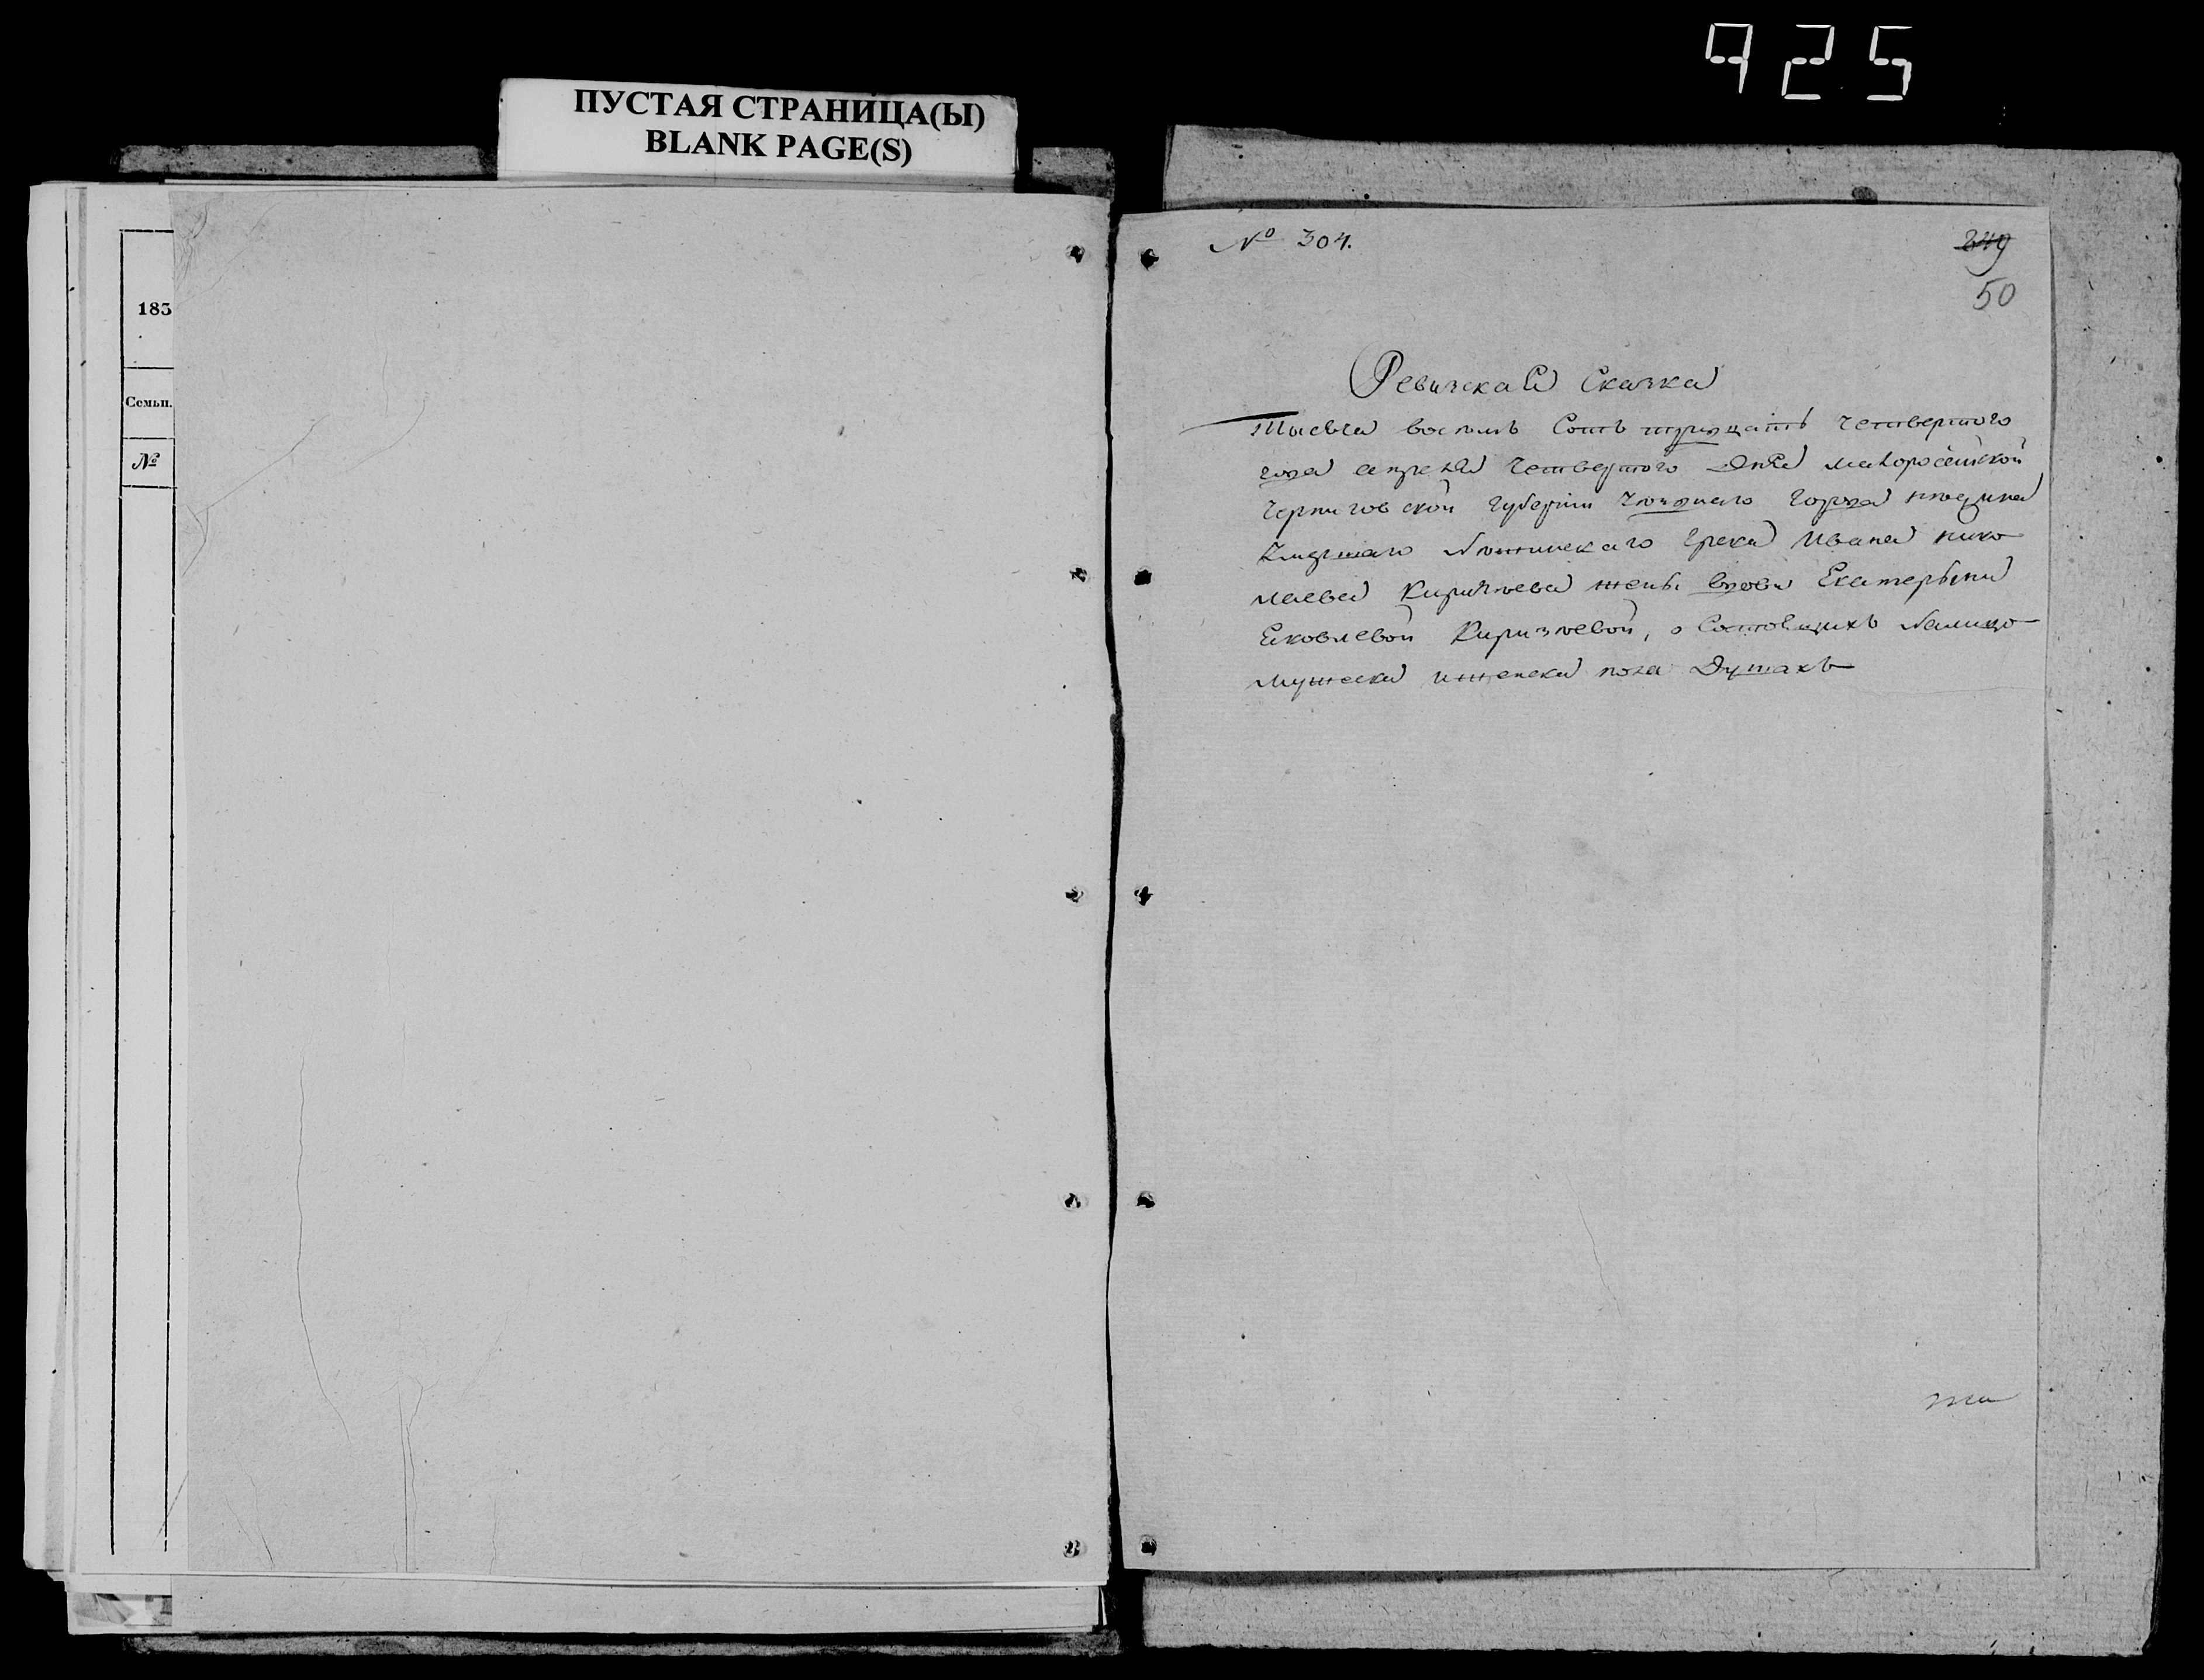 925
ПУСТАЯ СТРАНИЦА(Ы)
BLANK PAGE(S)
183
Семьи.
№
№ 304.
249
50
Ревизская Сказка
Тысяча восемь Сотъ тридцать четвертого
года апреля четвертого дня малоросейской
Черниговской губернии города нежина
Нежинскаго грека Ивана нико
лаева жены вдовы Екатерины
Яковлевой, о Состоящихъ налицо
мужеска и женска пола Душахъ